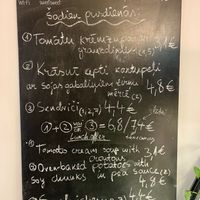 Šodien pusdienās:
① Tomātu krēmzupa ar
grauzdiņiem (1,3) 3,1€
② Krāsnī cepti kartupeļi
ar sojas gabaliņiem zirņu
mērcē (2) 4,8€
③ Sendviči (1,2,7) 4,4€
①+② 3 = 6,8/7,4€
Lunch offer
① Tomato cream soup with 3,1€
croutons
② Overbaked potatoes with
soy chunks in pea sauce (2)
4,8€